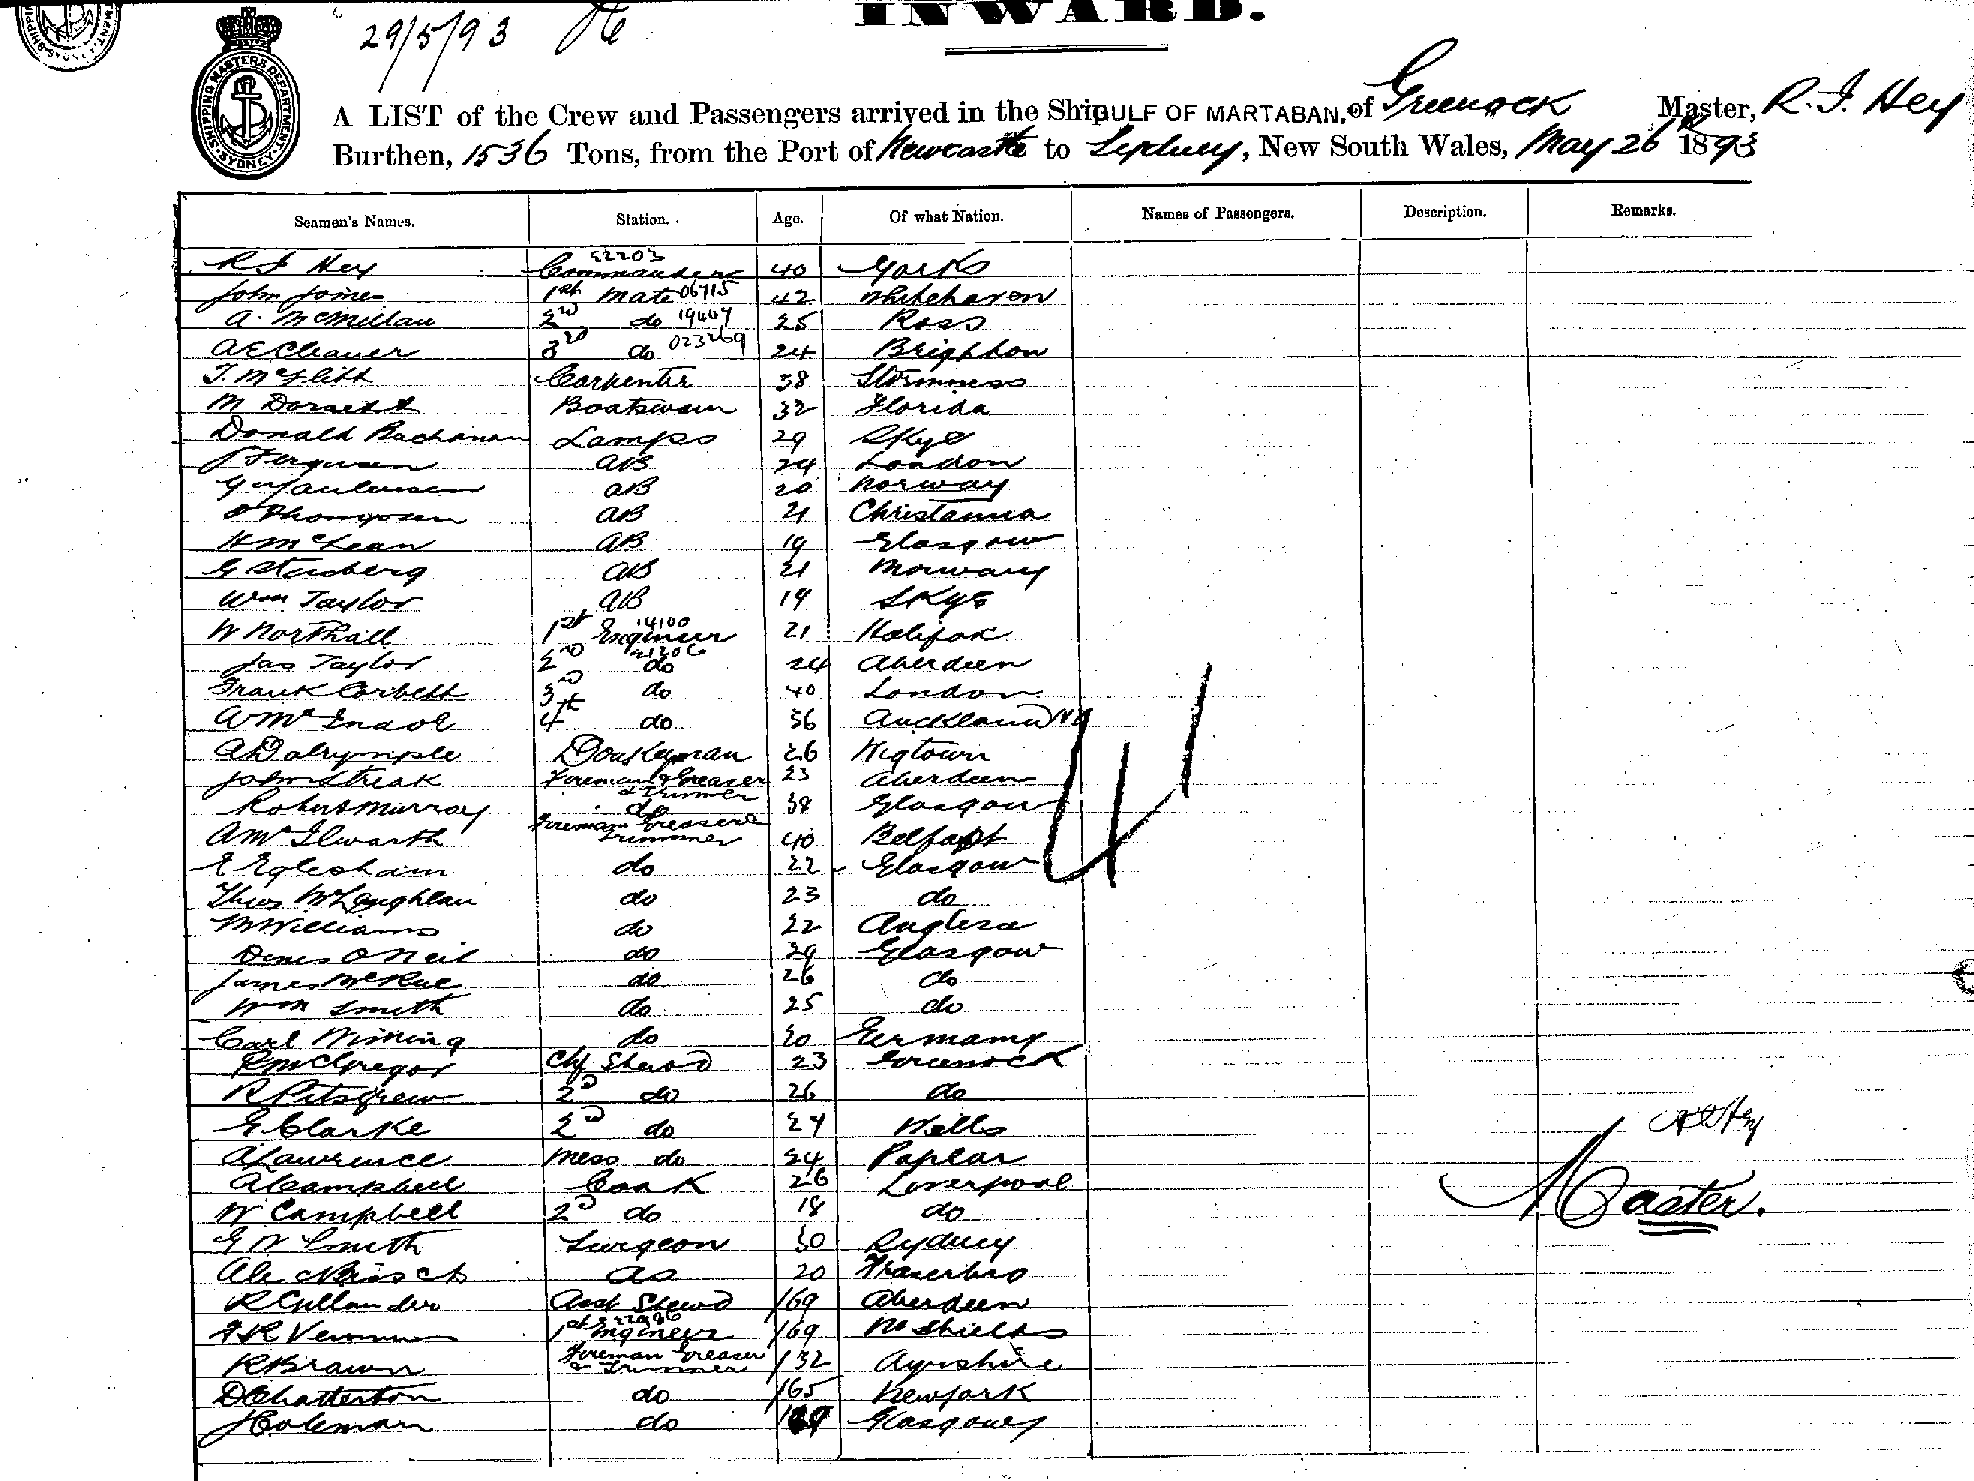 INWARD.
29/5/93
SHIPPING MASTERS DEPARTMENT SYDNEY
A LIST of the Crew and Passengers arrived in the Ship GULF OF MARTABAN, of Greenock Master, R. J. Hey
Burthen, 1536 Tons, from the Port of Newcastle to Sydney, New South Wales, May 26th 1893
Seamen's Names. Station. Age. Of what Nation. Names of Passengers. Description. Remarks.
R J Hey Commander 52203 40 York
John Jones 1st Mate 06715 42 Whitehaven
A. McMillan 2nd do 19467 25 Ross
A E Cleaver 3rd do 023269 24 Brighton
Carpenter 38 Stromness
M Boatswain 32 Florida
Donald Buchanan Lamps 29 Skye
Ferguson AB 24 London
AB 20 Norway
Thompson AB 21 Christania
H McLean AB 19 Glasgow
G AB 21
Wm Taylor AB 19 Skye
W Northall 1st Engineer 14100 21 Halifax
Jas Taylor 2nd do 24 Aberdeen
Frank Corbett 3rd do 40 London
4th do 36 Auckland
A Dalrymple Donkeyman 26 Wigtown
John Streak Fireman Greaser & Trimmer 23 Aberdeen
Robert Murray do 38 Glasgow
A McIlwarth Fireman Greaser & Trimmer 40 Belfast
E Eglesham do 22 Glasgow
Thos McLaughlan do 23 do
M Williams do 22
Denis O Neil do 29 Glasgow
James McRae do 26 do
Wm Smith do 25 do
Carl do 30 Germany
R McGregor Chf Stewd 23 Greenock
R 2nd do 26 do
E Clarke 2nd do 24 Wells
A Lawrence Mess do 24 Poplar
A Campbell Cook 26 Liverpool
W Campbell 2nd do 18 do
G W Smith Surgeon 30 Sydney
20
R Asst Stewd 69 Aberdeen
1st Engineer 69 No Shields
R Brown Fireman Greaser & Trimmer 32 Ayrshire
D Chatterton do 65 Newyork
J Coleman do Glasgow
R J Hey
Master.